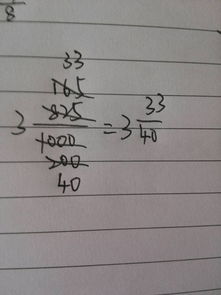 8
33
165
3 825/1000 = 3 33/40
200
40